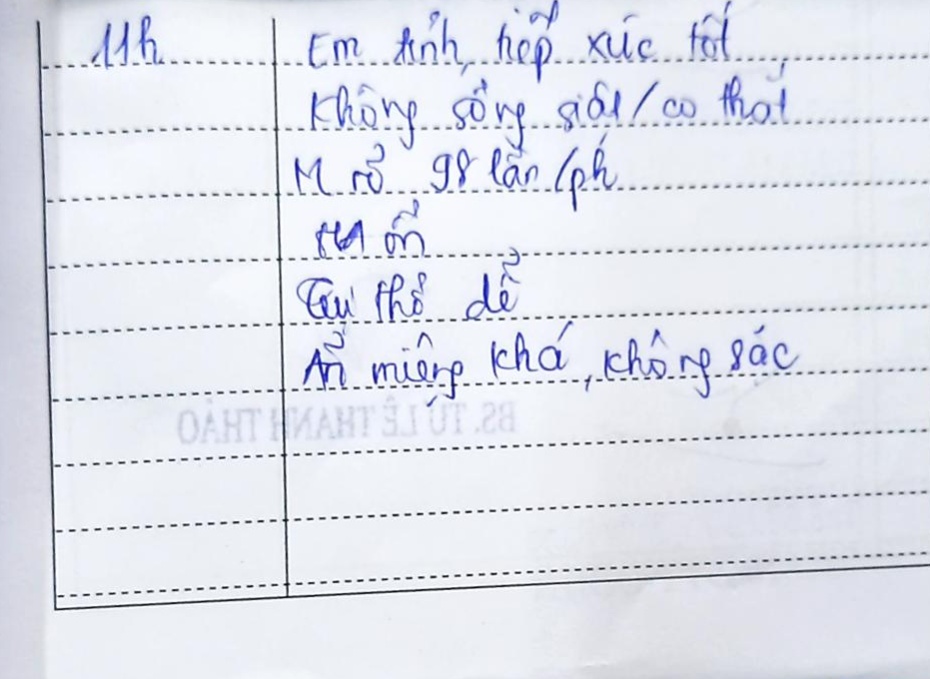 11h Em tỉnh, tiếp xúc tốt
Không sống giật/co thắt
M rõ 98 lần/ph
HA ổn
Tự thở dễ
Ăn miệng khá, không sặc
BS. TỪ LÊ THANH THẢO